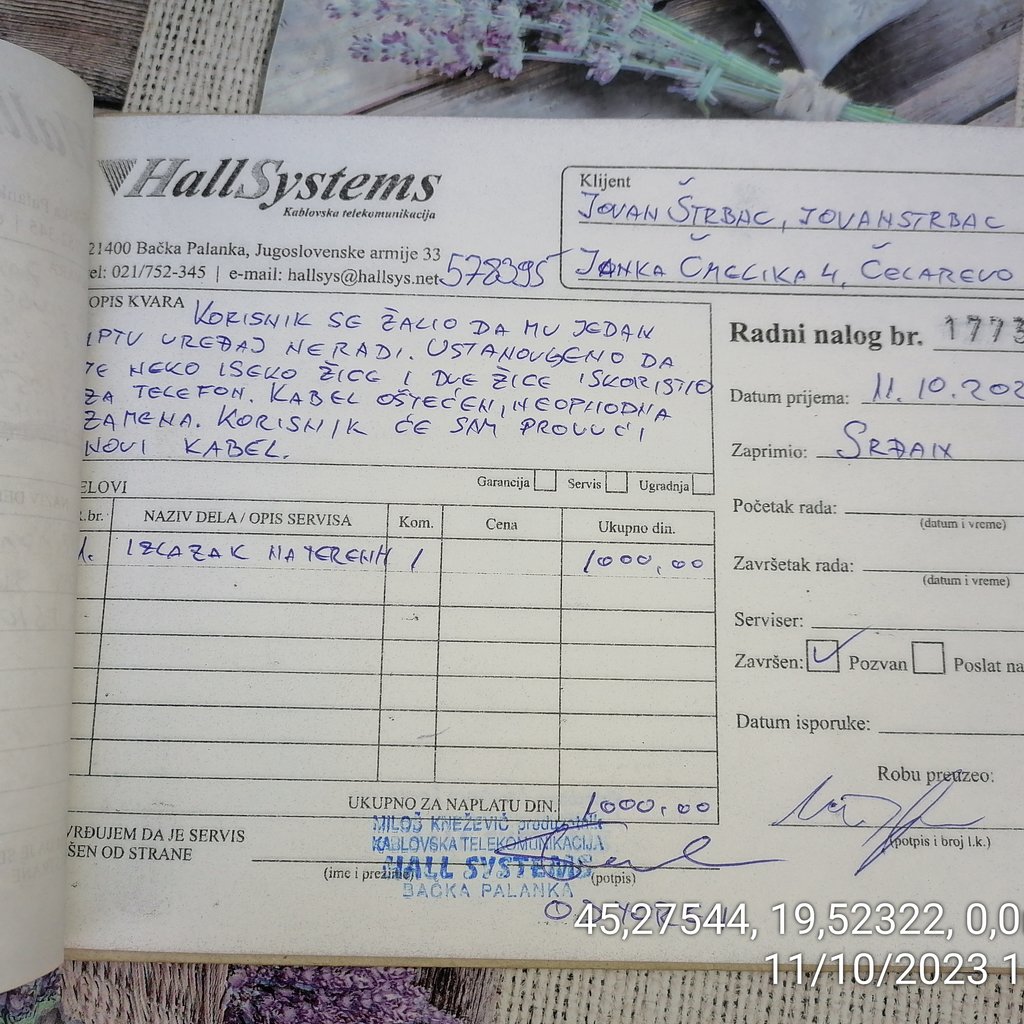 HallSystems
Kablovska telekomunikacija
21400 Bačka Palanka, Jugoslovenske armije 33
el: 021/752-345 | e-mail: hallsys@hallsys.net
578395
Klijent
JOVAN ŠTRBAC, JOVANSTRBAC
JANKA ČMELIKA 4, ČELAREVO
OPIS KVARA
KORISNIK SE ŽALIO DA MU JEDAN
IPTV UREĐAJ NE RADI. USTANOVLJENO DA
JE NEKO ISEKO ŽICE I DVE ŽICE ISKORISTIO
ZA TELEFON. KABEL OŠTEĆEN, NEOPHODNA
ZAMENA. KORISNIK ĆE SAM PROVUĆI
NOVI KABEL.
Radni nalog br. 1773
Datum prijema: 11.10.202
Zaprimio: SRĐAN
Početak rada:
(datum i vreme)
Završetak rada:
(datum i vreme)
Serviser:
Završen: Pozvan Poslat na
Datum isporuke:
Robu preuzeo:
(potpis i broj l.k.)
ELOVI
Garancija Servis Ugradnja
R.br. NAZIV DELA / OPIS SERVISA Kom. Cena Ukupno din.
1. IZLAZAK NA TEREN 1 1000,00
UKUPNO ZA NAPLATU DIN. 1000,00
VRĐUJEM DA JE SERVIS
ŠEN OD STRANE
(ime i prezime)
(potpis)
MILOŠ KNEŽEVIĆ preduzetnik
KABLOVSKA TELEKOMUNIKACIJA
HALL SYSTEMS
BAČKA PALANKA
45,27544, 19,52322, 0,0
11/10/2023 1